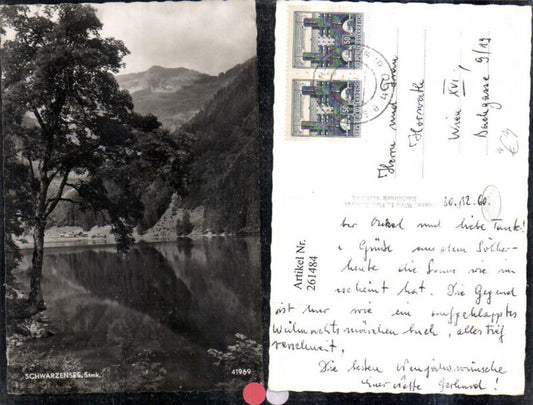 SCHWARZENSEE, Stmk.
41969
Herrn und Frau
Horwath
Wien XVI.
9/19
30.12.60.
Artikel Nr.
261484
Onkel und liebe Tante!
Grüße aus dem
heute die Sonne wie im
scheint hat. Die Gegend
ist hier wie ein aufgeklapptes
Weihnachtsmärchenbuch, alles tief
verschneit.
Die besten Neujahrswünsche
Euer Neffe Gerhard!